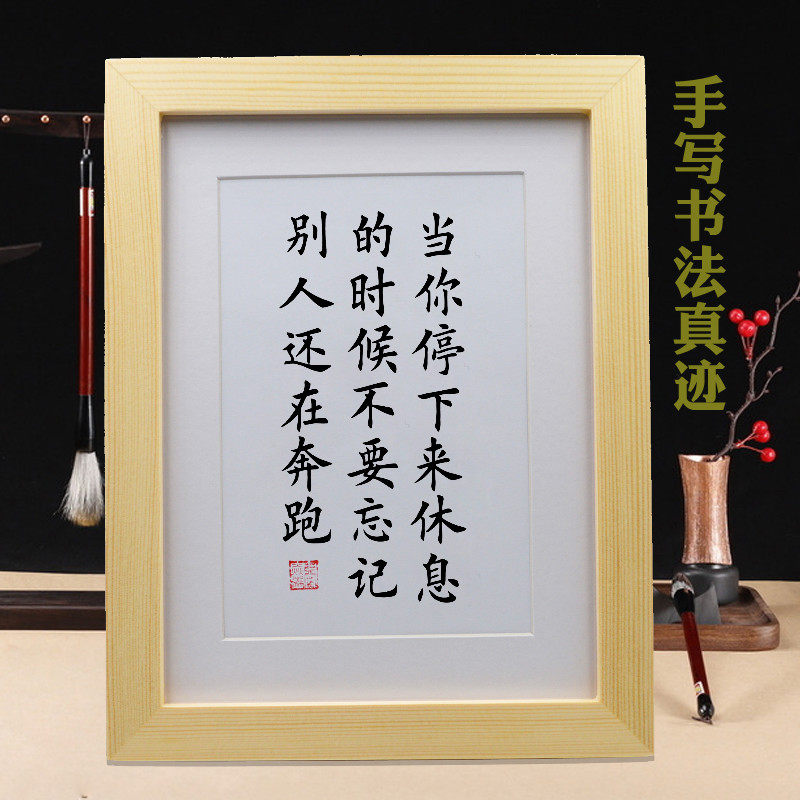 当你停下来休息
的时候不要忘记
别人还在奔跑
手写书法真迹